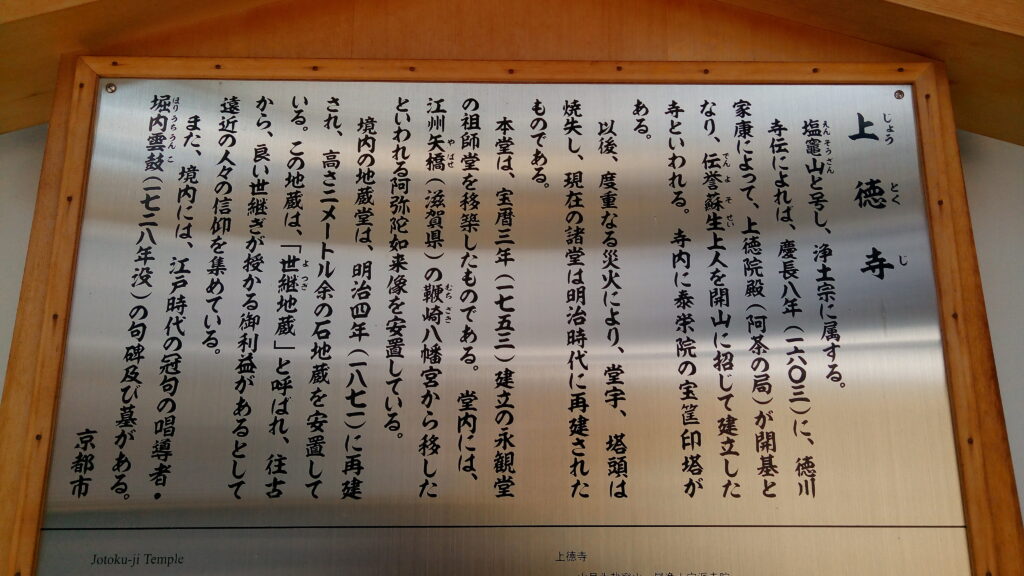 上徳寺
じょうとくじ
塩竈山と号し、浄土宗に属する。
えんそうさん
寺伝によれば、慶長八年(一六〇三)に、徳川
家康によって、上徳院殿(阿茶の局)が開基と
なり、伝誉蘇生上人を開山に招じて建立した
でんよそせい
寺といわれる。寺内に泰栄院の宝筐印塔が
ある。
以後、度重なる災火により、堂宇、塔頭は
焼失し、現在の諸堂は明治時代に再建された
ものである。
本堂は、宝暦三年(一七五三)建立の永観堂
の祖師堂を移築したものである。堂内には、
江州矢橋(滋賀県)の鞭崎八幡宮から移した
やばせ
むちさき
といわれる阿弥陀如来像を安置している。
境内の地蔵堂は、明治四年(一八七一)に再建
され、高さ二メートル余の石地蔵を安置して
いる。この地蔵は、「世継地蔵」と呼ばれ、往古
よつぎ
から、良い世継ぎが授かる御利益があるとして
遠近の人々の信仰を集めている。
また、境内には、江戸時代の冠句の唱導者・
堀内雲鼓(一七二八年没)の句碑及び墓がある。
ほりうちうんこ
京都市
Jotoku-ji Temple
上徳寺